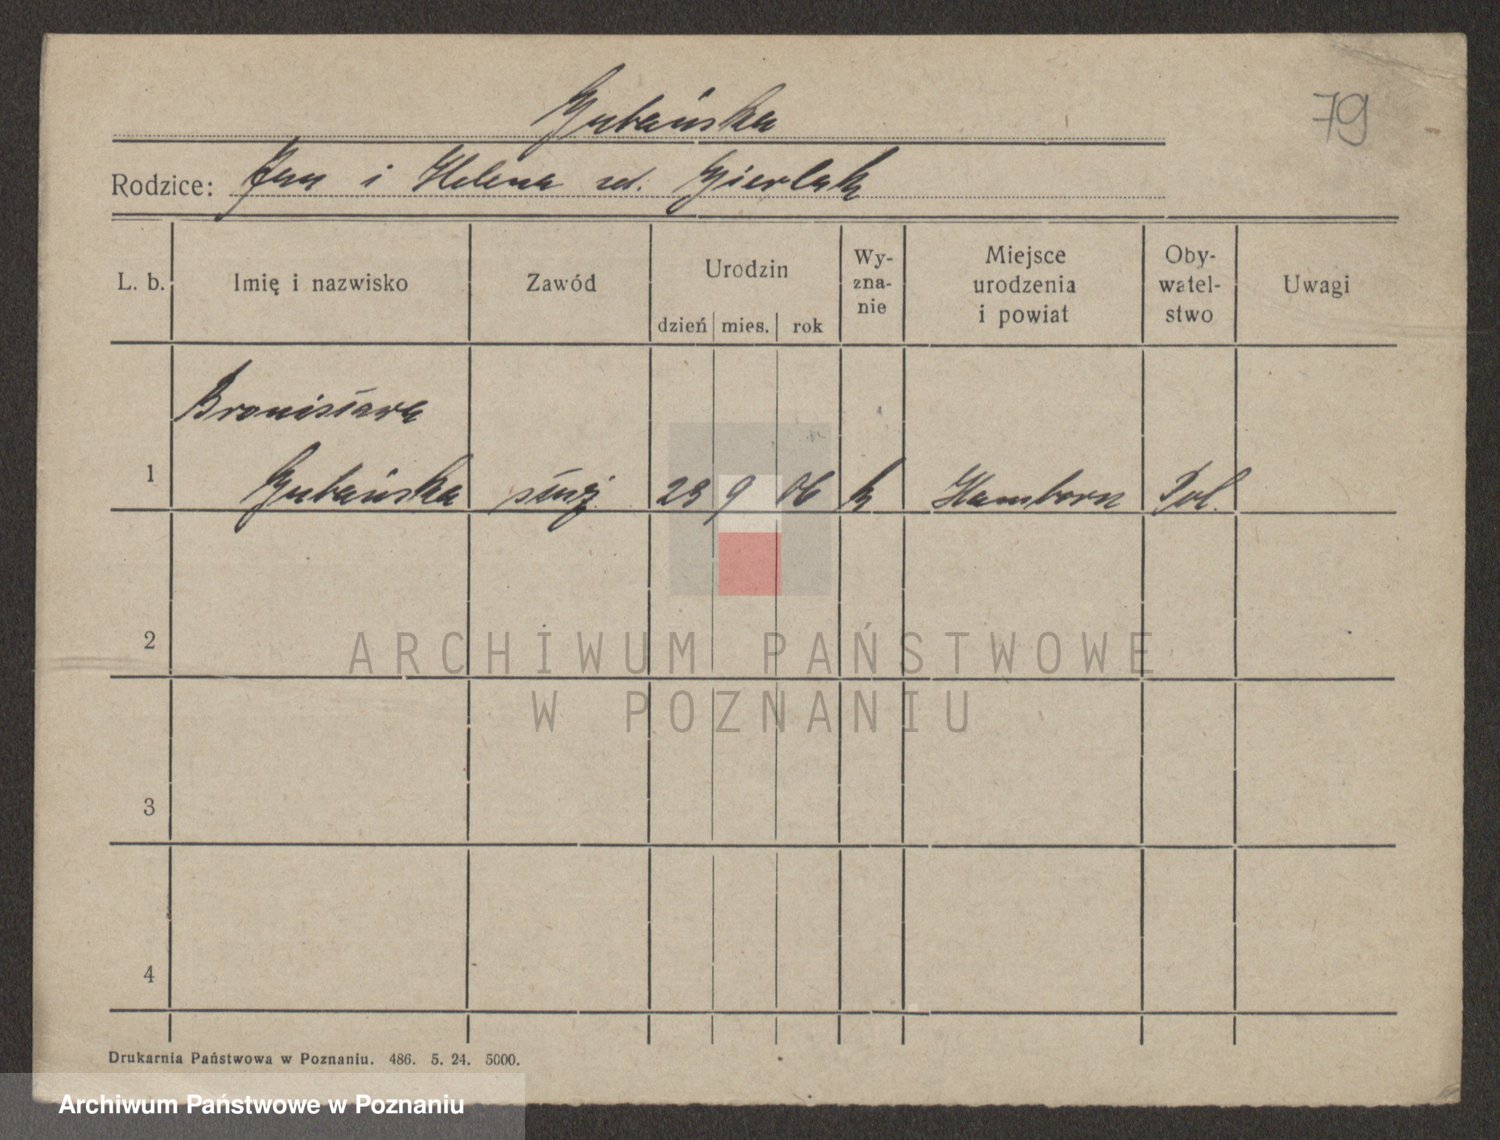 Gubańska
79
Rodzice: Jan i Helena zd. Gierlak
L. b. Imię i nazwisko Zawód Urodzin dzień mies. rok Wy-zna-nie Miejsce urodzenia i powiat Oby-watel-stwo Uwagi
Bronisława
1 Gubańska służ. 23 9 06 k Hamborn Pol.
2
ARCHIWUM PAŃSTWOWE
W POZNANIU
3
4
Drukarnia Państwowa w Poznaniu. 486. 5. 24. 5000.
Archiwum Państwowe w Poznaniu